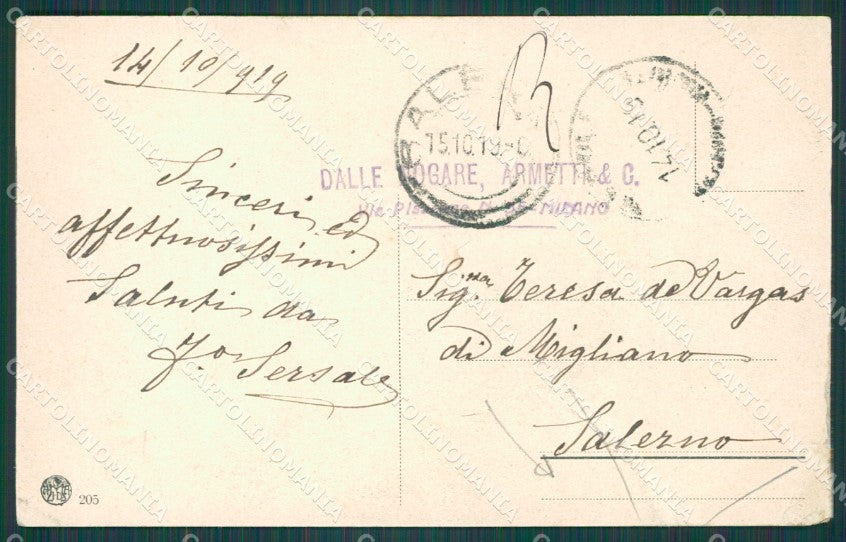 14/10/919
Sinceri ed
affettuosissimi
Saluti da
Sersale
205
DALLE NOGARE, ARMETTI & C.
MILANO
SALE
15.10.19
14 10 19
Sig.na Teresa de Vargas
di Migliano
Salerno
CARTOLINOMANIA